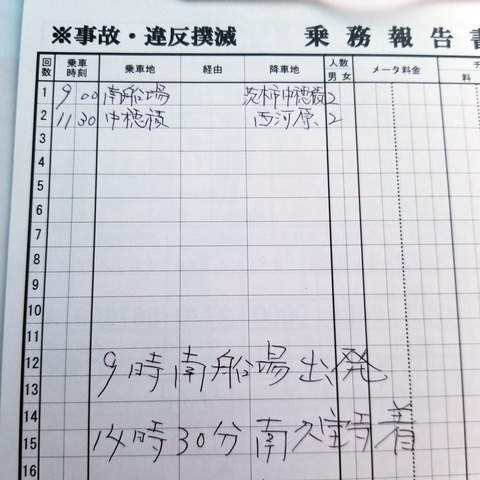 ※事故・違反撲滅 乗務報告書
回数 乗車時刻 乗車地 経由 降車地 人数 男 女 メータ料金 料
1 9 00 南船場 茨木市中穂積 2
2 11 30 中穂積 西河原 2
3
4
5
6
7
8
9
10
11
12 9時南船場出発
13
14
15 14時30分南久宝寺着
16